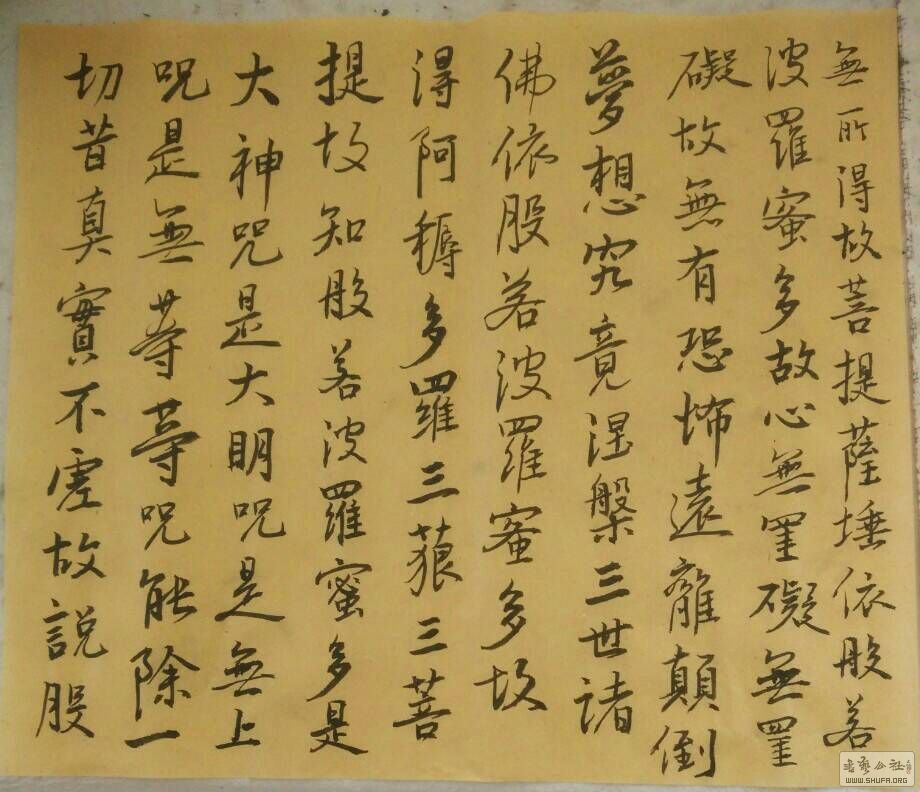 無所得故菩提薩埵依般若
波羅蜜多故心無罣礙無罣
礙故無有恐怖遠離顛倒
夢想究竟涅槃三世諸
佛依般若波羅蜜多故
得阿耨多羅三藐三菩
提故知般若波羅蜜多是
大神咒是大明咒是無上
咒是無等等咒能除一
切昔真實不虛故說般
書藝公社
WWW.SHUFA.ORG